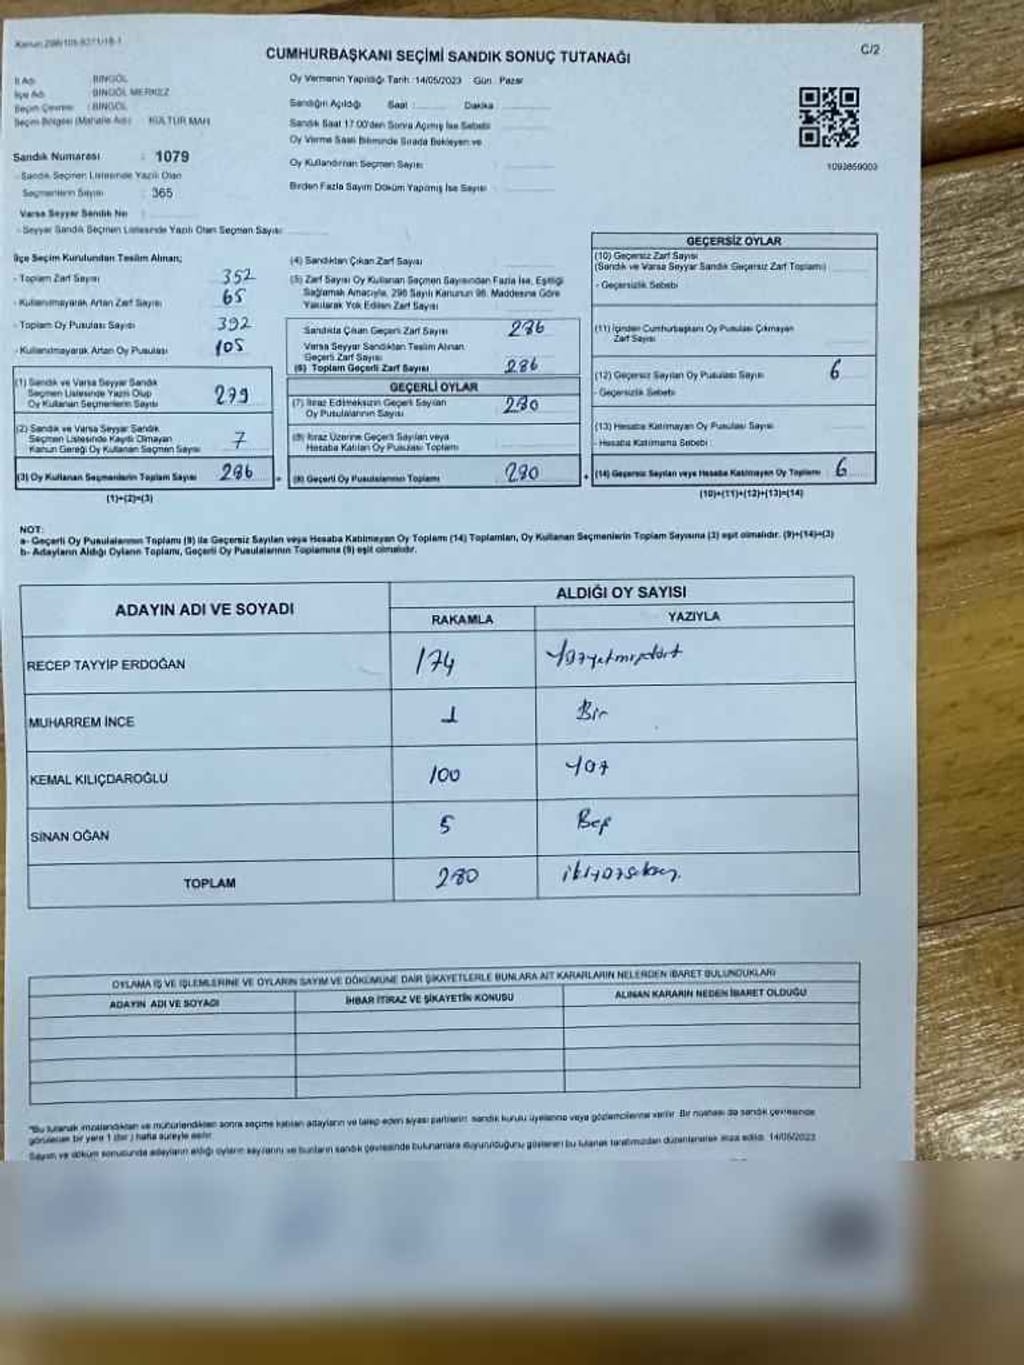 Kanun:298/105-9271/18-1
CUMHURBAŞKANI SEÇİMİ SANDIK SONUÇ TUTANAĞI
C/2
İl Adı : BİNGÖL
İlçe Adı : BİNGÖL MERKEZ
Seçim Çevresi : BİNGÖL
Seçim Bölgesi (Mahalle Adı) : KÜLTÜR MAH.
Sandık Numarası : 1079
- Sandık Seçmen Listesinde Yazılı Olan
Seçmenlerin Sayısı : 365
Varsa Seyyar Sandık No :
- Seyyar Sandık Seçmen Listesinde Yazılı Olan Seçmen Sayısı
Oy Vermenin Yapıldığı Tarih :14/05/2023 Gün : Pazar
Sandığın Açıldığı Saat : Dakika
Sandık Saat 17.00'den Sonra Açılmış İse Sebebi
Oy Verme Saati Bitiminde Sırada Bekleyen ve
Oy Kullandırılan Seçmen Sayısı
Birden Fazla Sayım Döküm Yapılmış İse Sayısı
1093859003
İlçe Seçim Kurulundan Teslim Alınan;
- Toplam Zarf Sayısı 352
- Kullanılmayarak Artan Zarf Sayısı 65
- Toplam Oy Pusulası Sayısı 392
- Kullanılmayarak Artan Oy Pusulası 105
(1) Sandık ve Varsa Seyyar Sandık
Seçmen Listesinde Yazılı Olup
Oy Kullanan Seçmenlerin Sayısı 279
(2) Sandık ve Varsa Seyyar Sandık
Seçmen Listesinde Kayıtlı Olmayan
Kanun Gereği Oy Kullanan Seçmen Sayısı 7
(3) Oy Kullanan Seçmenlerin Toplam Sayısı 286
(1)+(2)=(3)
(4) Sandıktan Çıkan Zarf Sayısı
(5) Zarf Sayısı Oy Kullanan Seçmen Sayısından Fazla İse, Eşitliği
Sağlamak Amacıyla, 298 Sayılı Kanunun 98. Maddesine Göre
Yakılarak Yok Edilen Zarf Sayısı
Sandıkta Çıkan Geçerli Zarf Sayısı 286
Varsa Seyyar Sandıktan Teslim Alınan
Geçerli Zarf Sayısı
(6) Toplam Geçerli Zarf Sayısı 286
GEÇERLİ OYLAR
(7) İtiraz Edilmeksizin Geçerli Sayılan
Oy Pusulalarının Sayısı 280
(8) İtiraz Üzerine Geçerli Sayılan veya
Hesaba Katılan Oy Pusulası Toplamı
(9) Geçerli Oy Pusulalarının Toplamı 280
GEÇERSİZ OYLAR
(10) Geçersiz Zarf Sayısı
(Sandık ve Varsa Seyyar Sandık Geçersiz Zarf Toplamı)
- Geçersizlik Sebebi
(11) İçinden Cumhurbaşkanı Oy Pusulası Çıkmayan
Zarf Sayısı
(12) Geçersiz Sayılan Oy Pusulası Sayısı 6
- Geçersizlik Sebebi
(13) Hesaba Katılmayan Oy Pusulası Sayısı
- Hesaba Katılmama Sebebi :
(14) Geçersiz Sayılan veya Hesaba Katılmayan Oy Toplamı 6
(10)+(11)+(12)+(13)=(14)
NOT:
a- Geçerli Oy Pusulalarının Toplamı (9) ile Geçersiz Sayılan veya Hesaba Katılmayan Oy Toplamı (14) Toplamları, Oy Kullanan Seçmenlerin Toplam Sayısına (3) eşit olmalıdır. (9)+(14)=(3)
b- Adayların Aldığı Oyların Toplamı, Geçerli Oy Pusulalarının Toplamına (9) eşit olmalıdır.
ADAYIN ADI VE SOYADI
ALDIĞI OY SAYISI
RAKAMLA YAZIYLA
RECEP TAYYİP ERDOĞAN 174 Yüzyetmişdört
MUHARREM İNCE 1 Bir
KEMAL KILIÇDAROĞLU 100 Yüz
SİNAN OĞAN 5 Beş
TOPLAM 280 ikiyüzseksen.
OYLAMA İŞ VE İŞLEMLERİNE VE OYLARIN SAYIM VE DÖKÜMÜNE DAİR ŞİKAYETLERLE BUNLARA AİT KARARLARIN NELERDEN İBARET BULUNDUKLARI
ADAYIN ADI VE SOYADI İHBAR İTİRAZ VE ŞİKAYETİN KONUSU ALINAN KARARIN NEDEN İBARET OLDUĞU
*Bu tutanak imzalandıktan ve mühürlendikten sonra seçime katılan adayların ve talep eden siyasi partilerin sandık kurulu üyelerine veya gözlemcilerine verilir. Bir nüshası da sandık çevresinde
görülecek bir yere 1 (bir) hafta süreyle asılır.
Sayım ve döküm sonucunda adayların aldığı oyların sayılarını ve bunların sandık çevresinde bulunanlara duyurulduğunu gösteren bu tutanak tarafımızdan düzenlenerek imza edildi. 14/05/2023